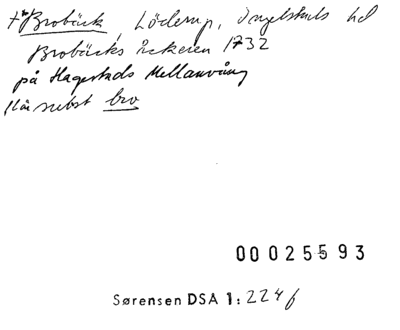 †*Brobäck, Löderup, Ingelstads hd
Brobäcks åckeren 1732
på Hagestads Mellanvång
I låi subst bro
00025593
Sørensen DSA 1: 224 f